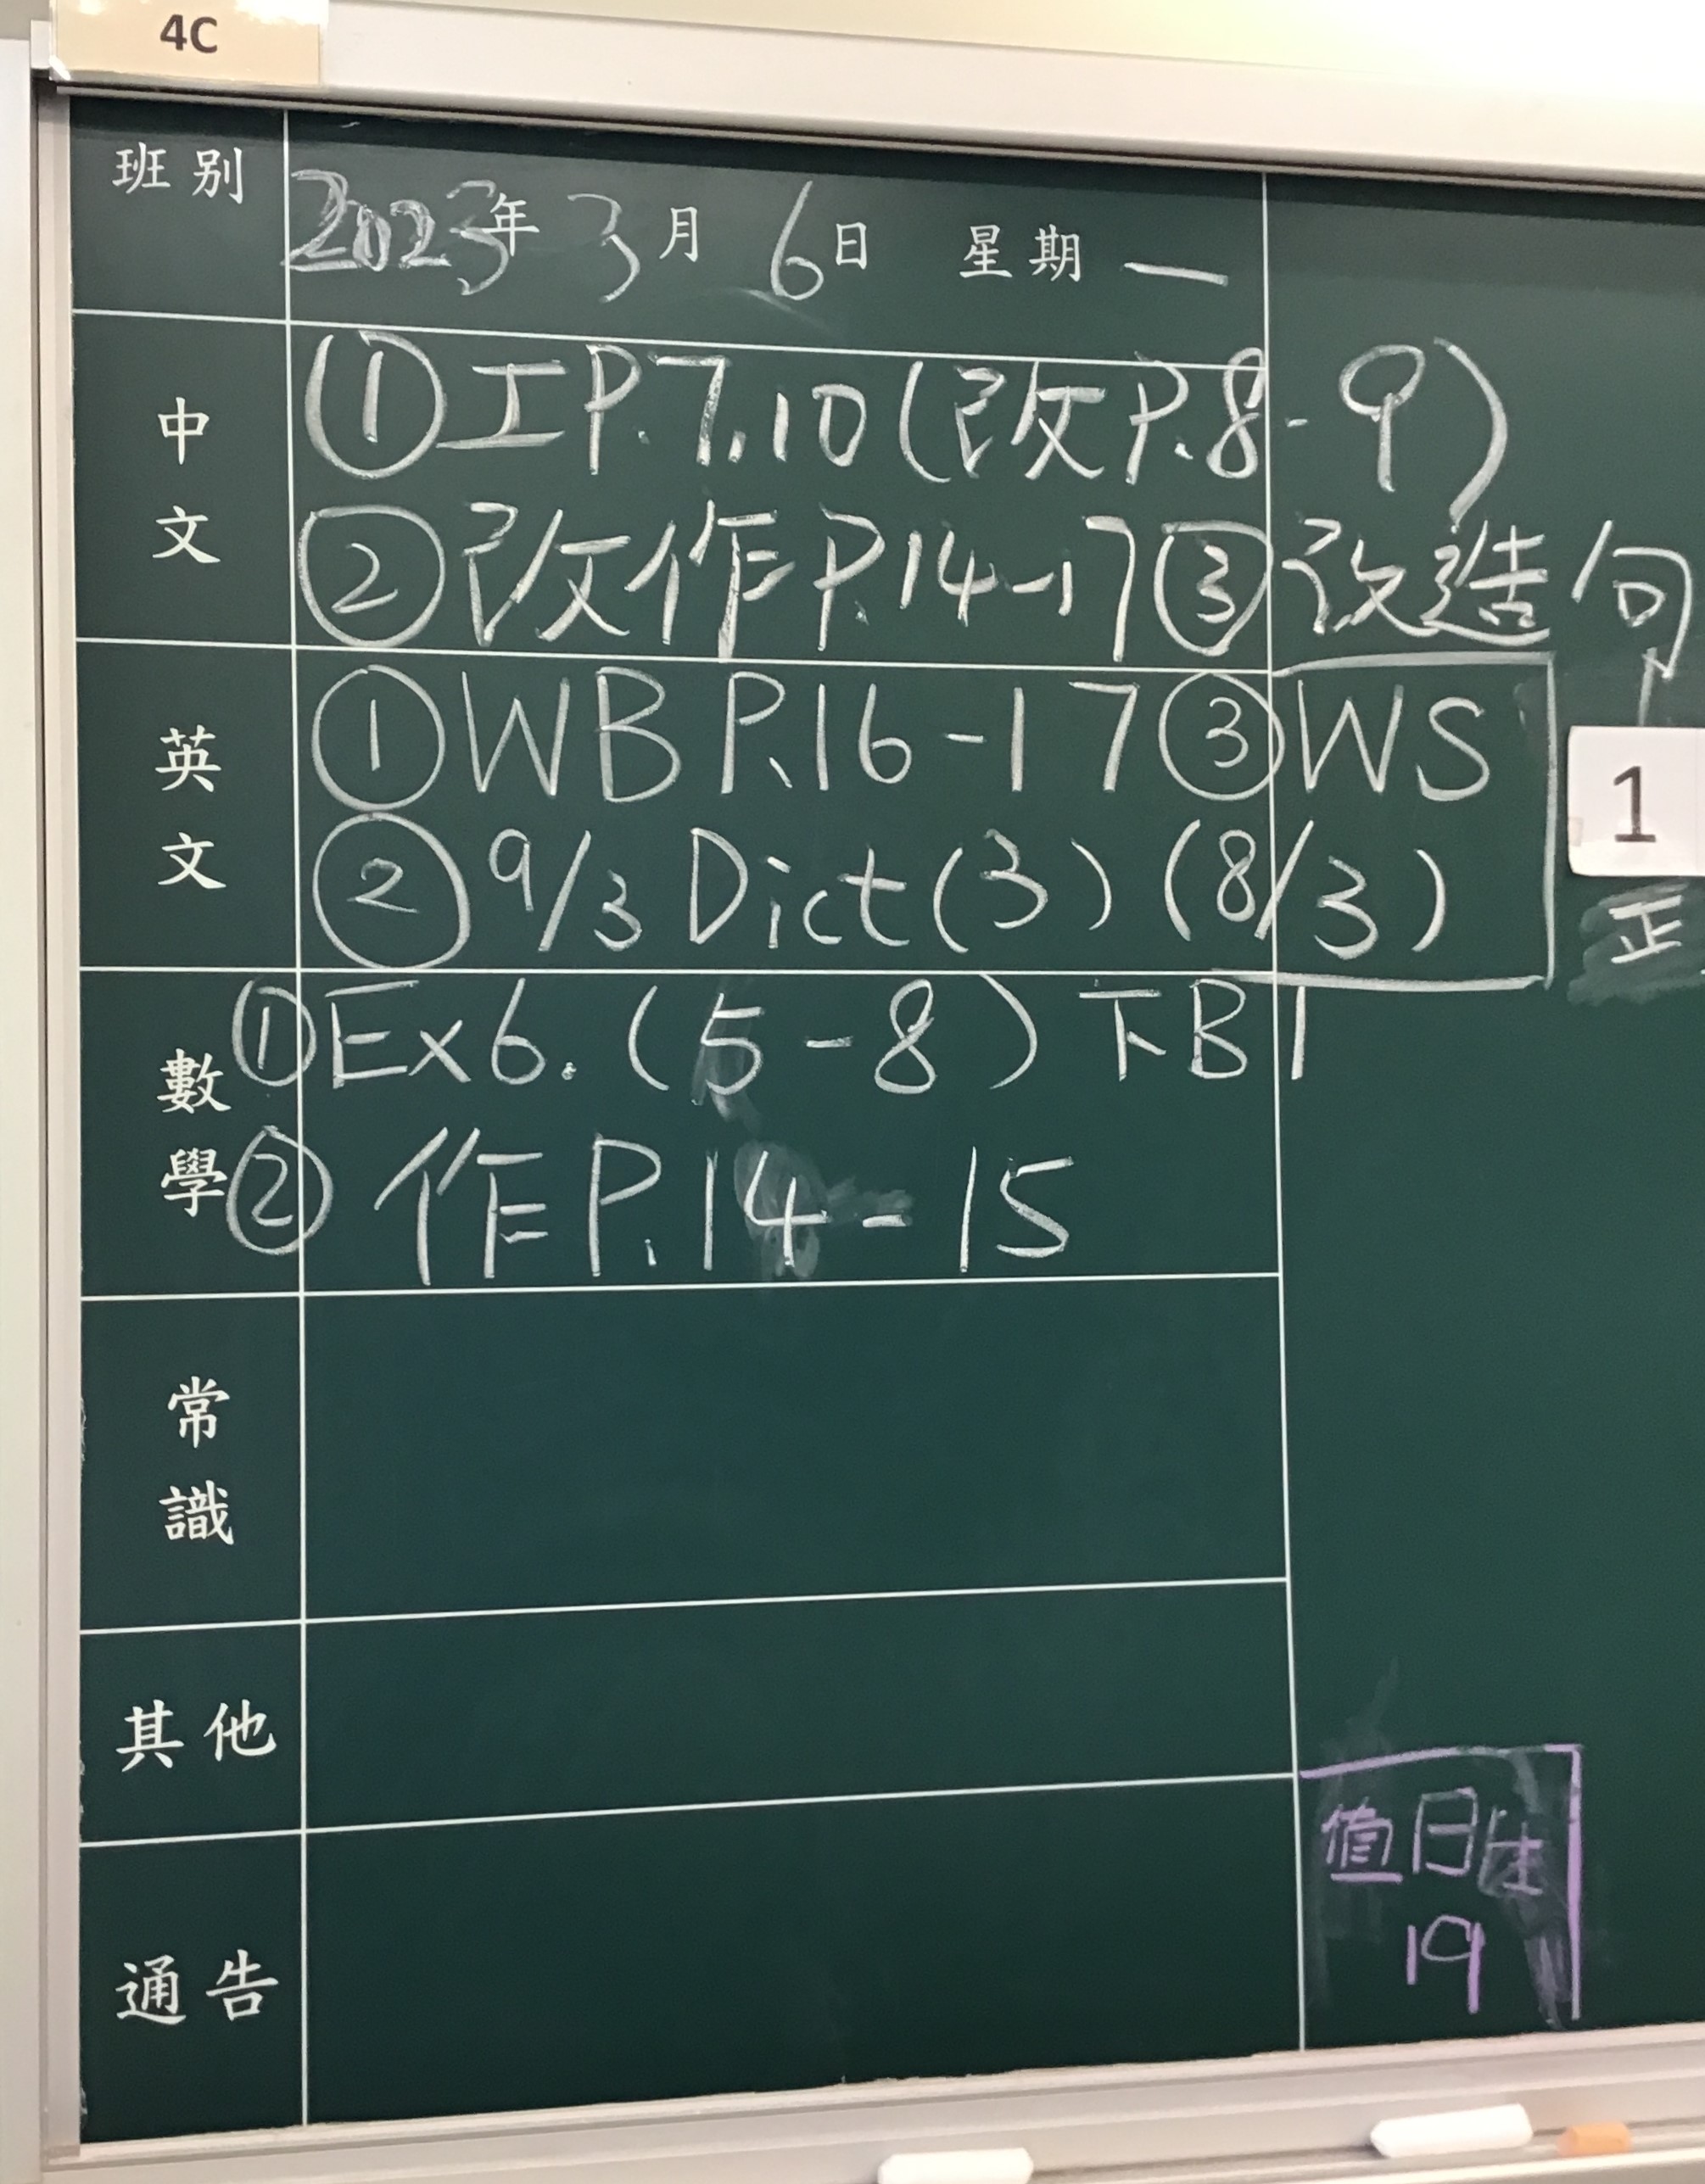 4C
班別 2023年 3月 6日 星期一
中文
①工P.7,10(改P.8-9)
②改作P.14-17 ③改造句
英文
①WB P.16-17 ③WS
②9/3 Dict(3) (8/3)
1
正
數學
①Ex6.(5-8) 下B1
②作P.14-15
常識
其他
通告
值日生
19